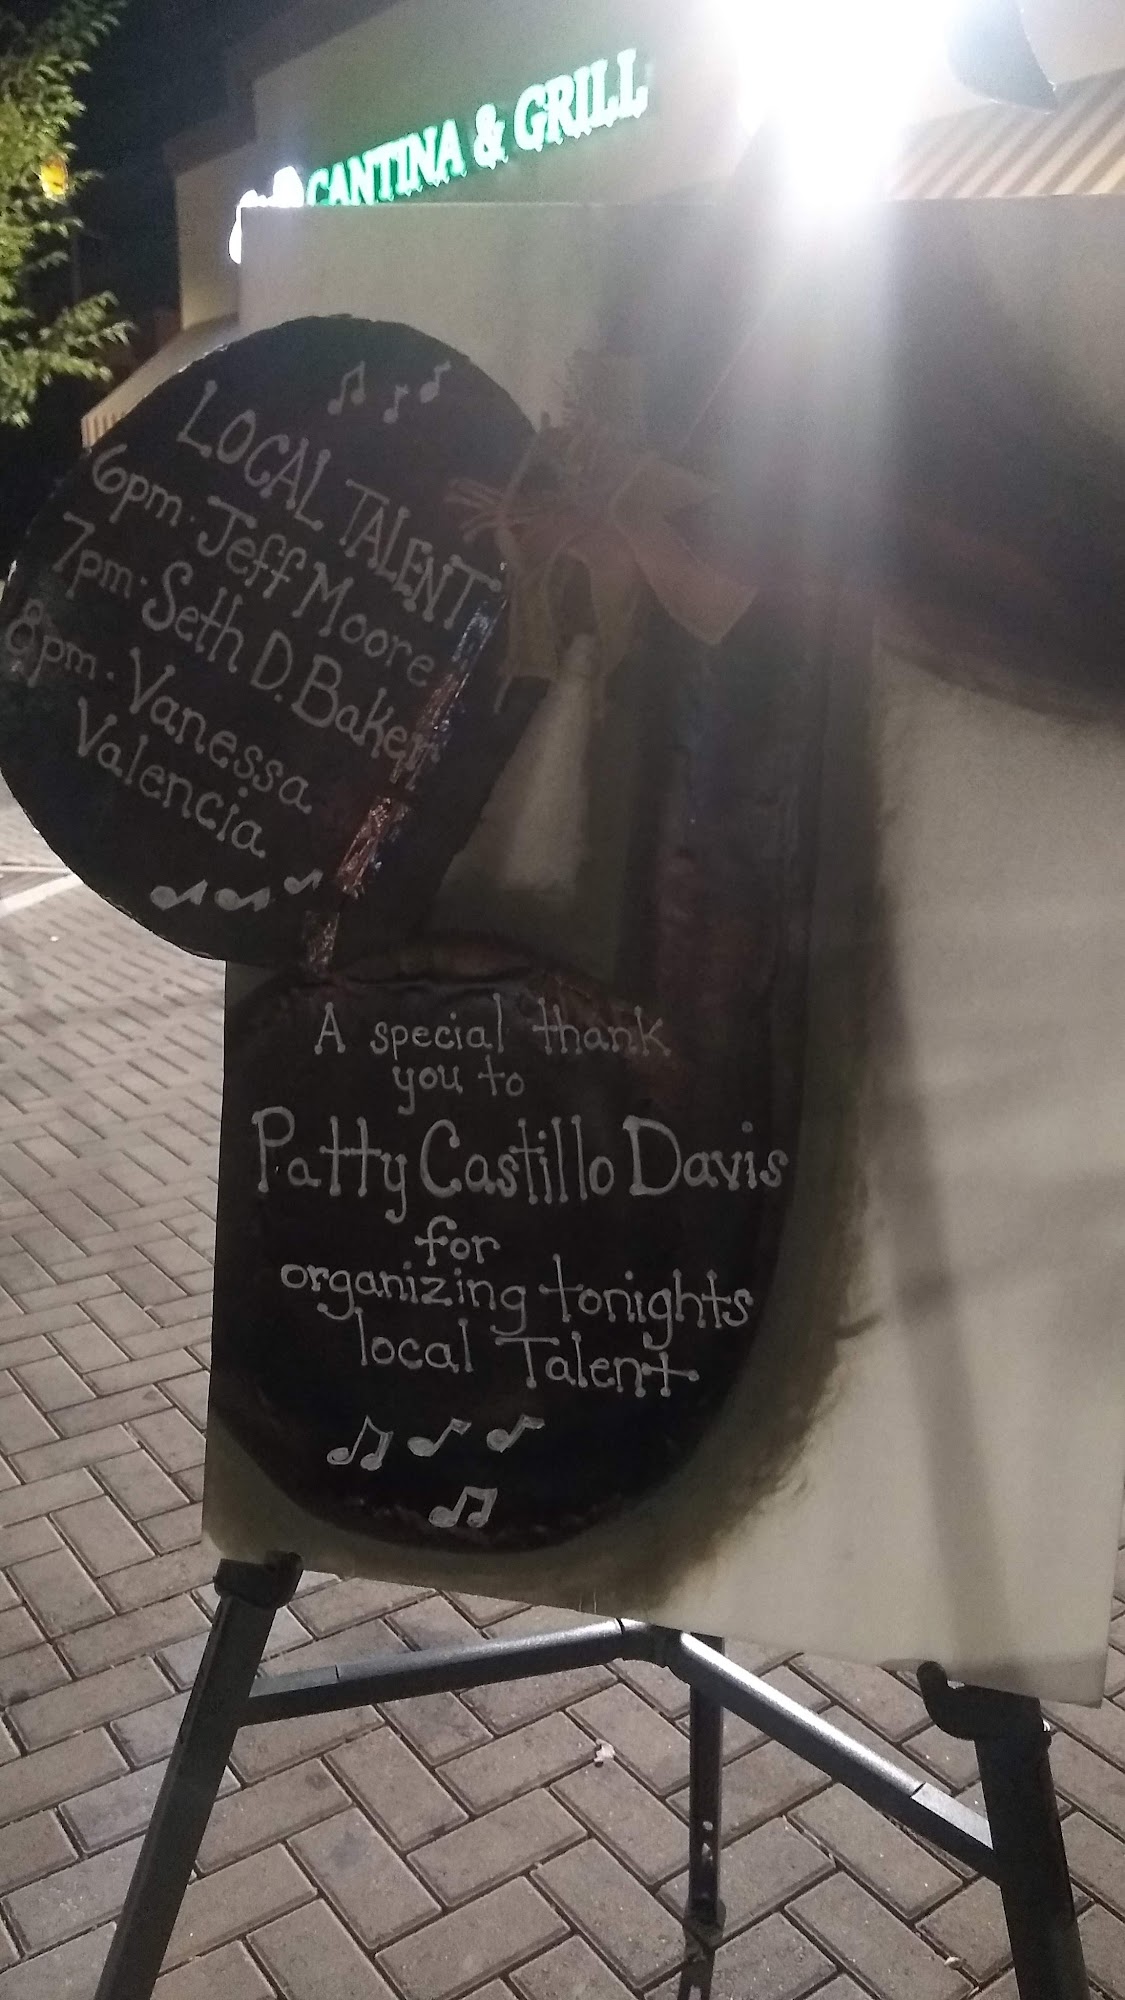 CANTINA & GRILL
LOCAL TALENT
6pm. Jeff Moore
7pm. Seth D. Baker
8pm. Vanessa
Valencia
A special thank
you to
Patty Castillo Davis
for
organizing tonights
local Talent